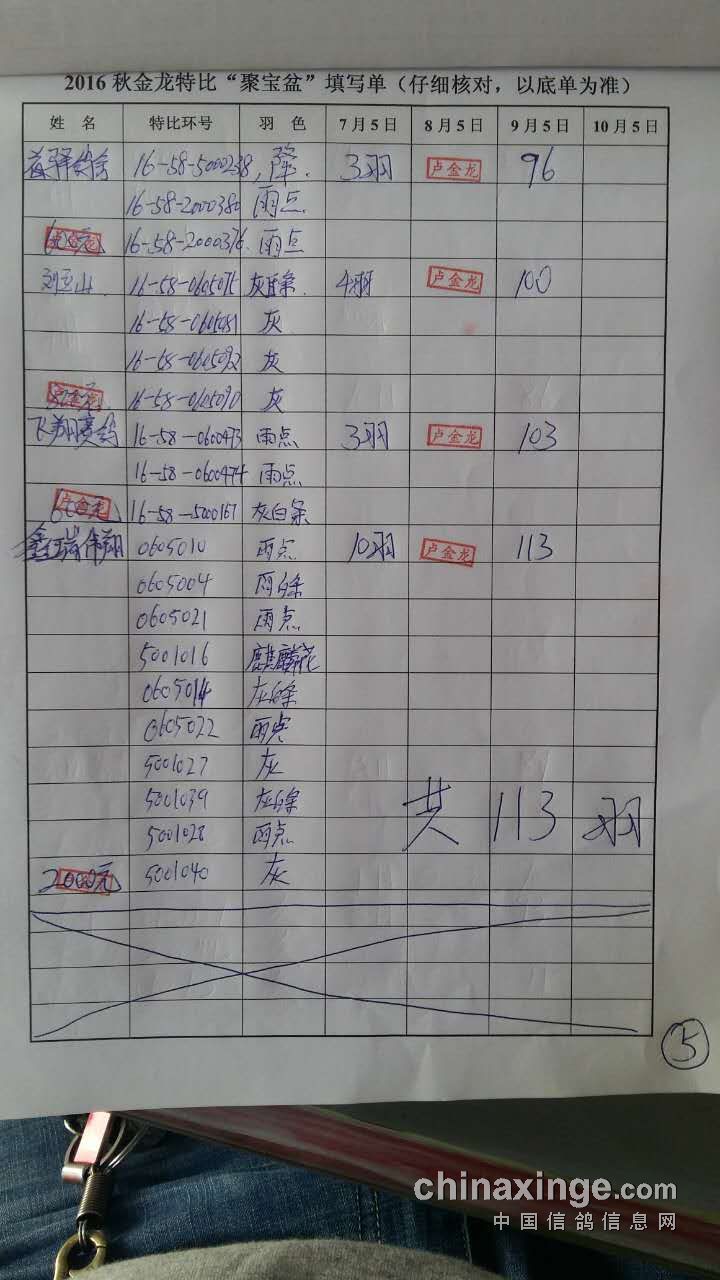 2016秋金龙特比“聚宝盆”填写单（仔细核对，以底单为准）
姓 名 特比环号 羽 色 7月5日 8月5日 9月5日 10月5日
16-58-5000238, 降. 3羽 卢金龙 96
16-58-2000380 雨点
16-58-2000376 雨点
刘玉山 16-58-0605075 灰白条. 4羽 卢金龙 100
16-58-0605081 灰
16-58-0605092 灰
16-58-0605090 灰
飞翔赛鸽 16-58-0600473 雨点 3羽 卢金龙 103
16-58-0600474 雨点
卢金龙 16-58-5000167 灰白条
鑫瑞伟翔 0605010 雨点 10羽 卢金龙 113
0605004 雨白条
0605021 雨点
5001016 麒麟花
0605014 灰白条
0605022 雨点
5001027 灰
5001039 灰白条 共 113 羽
5001028 雨点
2000元 5001040 灰
5
chinaxinge.com
中国信鸽信息网